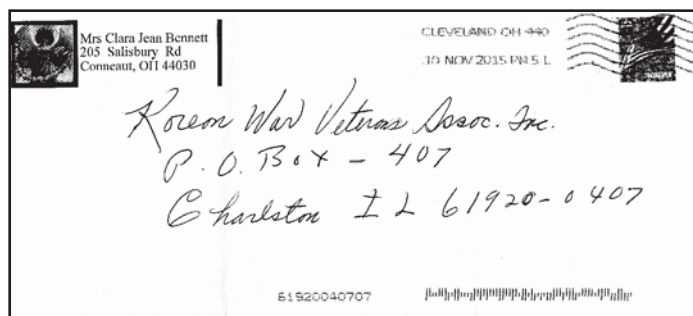 Mrs Clara Jean Bennett
205 Salisbury Rd
Conneaut, OH 44030
CLEVELAND OH 440
10 NOV 2015 PM 5 L
Korean War Veterans Assoc. Inc.
P.O. Box - 407
Charleston IL 61920-0407
61920040707